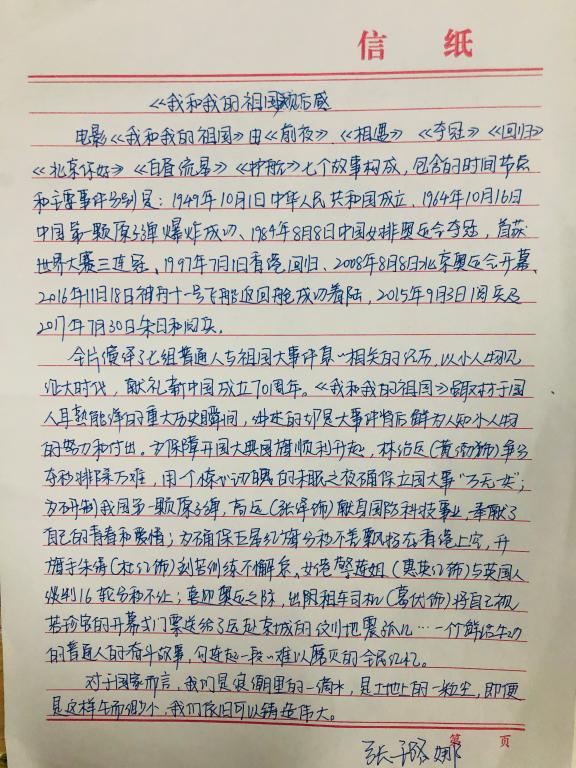 信 纸
《我和我的祖国》观后感
电影《我和我的祖国》由《前夜》《相遇》《夺冠》《回归》
《北京你好》《白昼流星》《护航》七个故事构成，包含的时间节点
和主要事件分别是：1949年10月1日中华人民共和国成立、1964年10月16日
中国第一颗原子弹爆炸成功、1984年8月8日中国女排奥运会夺冠，首获
世界大赛三连冠、1997年7月1日香港回归、2008年8月8日北京奥运会开幕、
2016年11月18日神舟十一号飞船返回舱成功着陆，2015年9月3日阅兵及
2017年7月30日朱日和阅兵。
全片演绎了七组普通人与祖国大事件息息相关的经历，以小人物见
证大时代，献礼新中国成立70周年。《我和我的祖国》取材于国
人耳熟能详的重大历史瞬间，讲述的却是大事件背后鲜为人知小人物
的努力和付出。为保障开国大典国旗顺利升起，林治远（黄渤饰）争分
夺秒排除万难，用一个惊心动魄的未眠之夜确保立国大事“万无一失”；
为研制我国第一颗原子弹，高远（张译饰）献身国防科技事业，奉献了
自己的青春和爱情；为确保五星红旗分秒不差飘扬在香港上空，升
旗手朱涛（杜江饰）刻苦训练不懈怠、女港警莲姐（惠英红饰）与英国人
谈判16轮分秒不让；喜迎奥运之际，出租车司机（葛优饰）将自己视
若珍宝的开幕式门票送给了远赴京城的汶川地震孤儿…一个鲜活生动
的普通人的奋斗故事，勾连起一段难以磨灭的全民记忆。
对于国家而言，我们是浪潮里的一滴水，是土地上的一粒尘，即便
是这样年而微小，我们依旧可以铸造伟大。
第 页
张璐娜